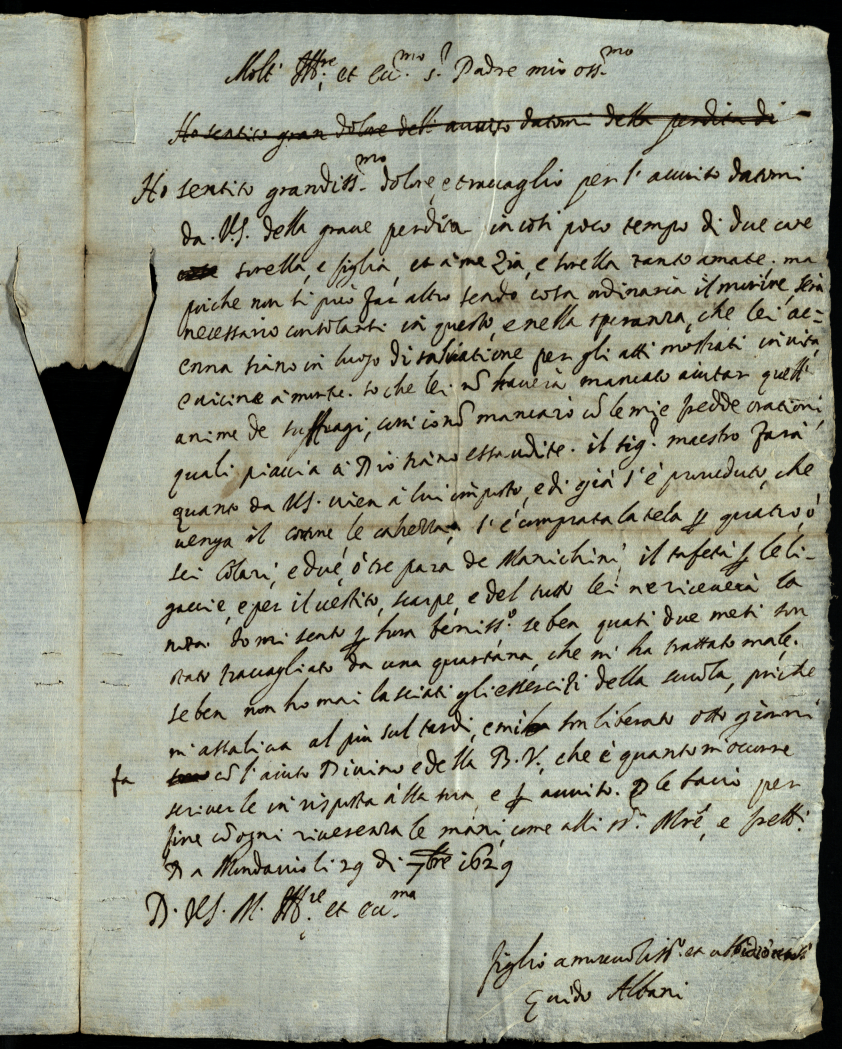 Molt' Ill.re et ecc.mo s.r Padre mio oss.mo
Ho sentito gran dolore dell'auuiso datomi della perdita di
Ho sentito grandiss.mo dolore, e trauaglio per l'auuiso datomi
da V.S. della graue perdita in così poco tempo di due care
sorella, e figlia, et à me Zia, e sorella tanto amate. ma
poiche non si può far altro sendo cosa ordinaria il morire, serà
necessario consolarsi in questo, e nella speranza, che lei ac=
cenna siano in luogo di saluatione per gli atti mostrati in uita,
e uicine à morte. so che lei nõ hauerà mancato aiutar quelle
anime de suffragi, come io nõ mancarò cõ le mie fredde orationi,
quali piaccia à Dio siano essaudite. il sig.r maestro farà
quanto da V.S. uien à lui imposto, e di già s'è proueduto, che
uenga il le calzette, s'è comprata la tela p quatro, ò
sei Colari, e due, ò tre para de Manichini, il tafetà p le li-
gaccie, e per il uestito, scarpe, e del tutto lei ne riceuerà la
nota. Io mi sento p hora beniss.o se ben quasi due mesi son
stato trauagliato da una quartana, che m'ha trattato male,
se ben non ho mai lasciati gli essercitij della scuola, poiche
m'assaliua al più sul tardi, e mi son liberato otto giorni
fa cõ l'aiuto Diuino e della B.V., che è quanto m'occorre
scriuerle in risposta alla sua, e p auuiso. le bacio per
fine cõ ogni riuerenza le mani, come alli Mre, e frelli.
Da Mondauio li 29 di 7bre 1629
D. V.S. M. Ill.re et ecc.ma
figlio amoreuoliss.o et
Guido Albani